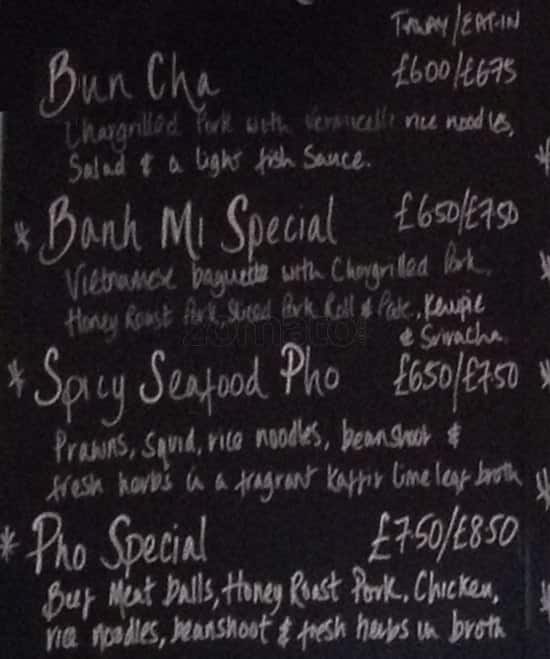 T'AWAY/EAT-IN
Bun Cha £600/£675
Chargrilled Pork with Vermicelli rice noodles,
Salad & a light fish Sauce.
* Banh Mi Special £650/£750
Vietnamese baguette with Chargrilled Pork,
Honey Roast Pork, Sliced Pork Roll & Pate, Kewpie
& Sriracha.
* Spicy Seafood Pho £650/£750
Prawns, squid, rice noodles, beanshoot &
fresh herbs in a fragrant Kaffir lime leaf broth
* Pho Special £750/£850
Beef Meat balls, Honey Roast Pork, Chicken,
rice noodles, beanshoot & fresh herbs in broth
zomato